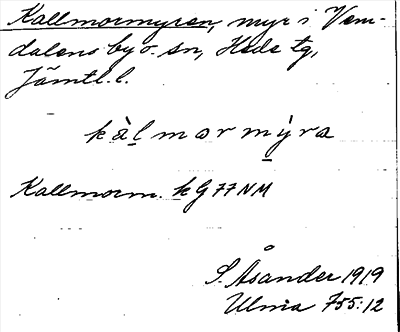 Kallmormyren, myr i Vem-
dalens by o. sn, Hede tg,
Jämtl. l.
kàlmormỳra
Kallmorm. kG77NM
S. Åsander 1919
Ulma 755:12